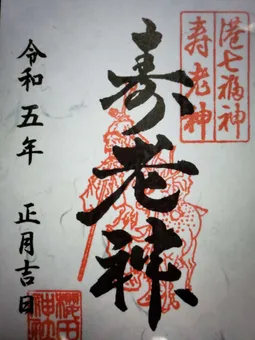 港七福神
寿老神
寿老神
令和五年 正月吉日
櫻田
神社